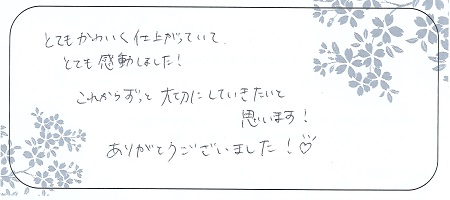 とてもかわいく仕上がっていて、
とても感動しました!
これからずっと大切にしていきたいと
思います!
ありがとうございました!♡